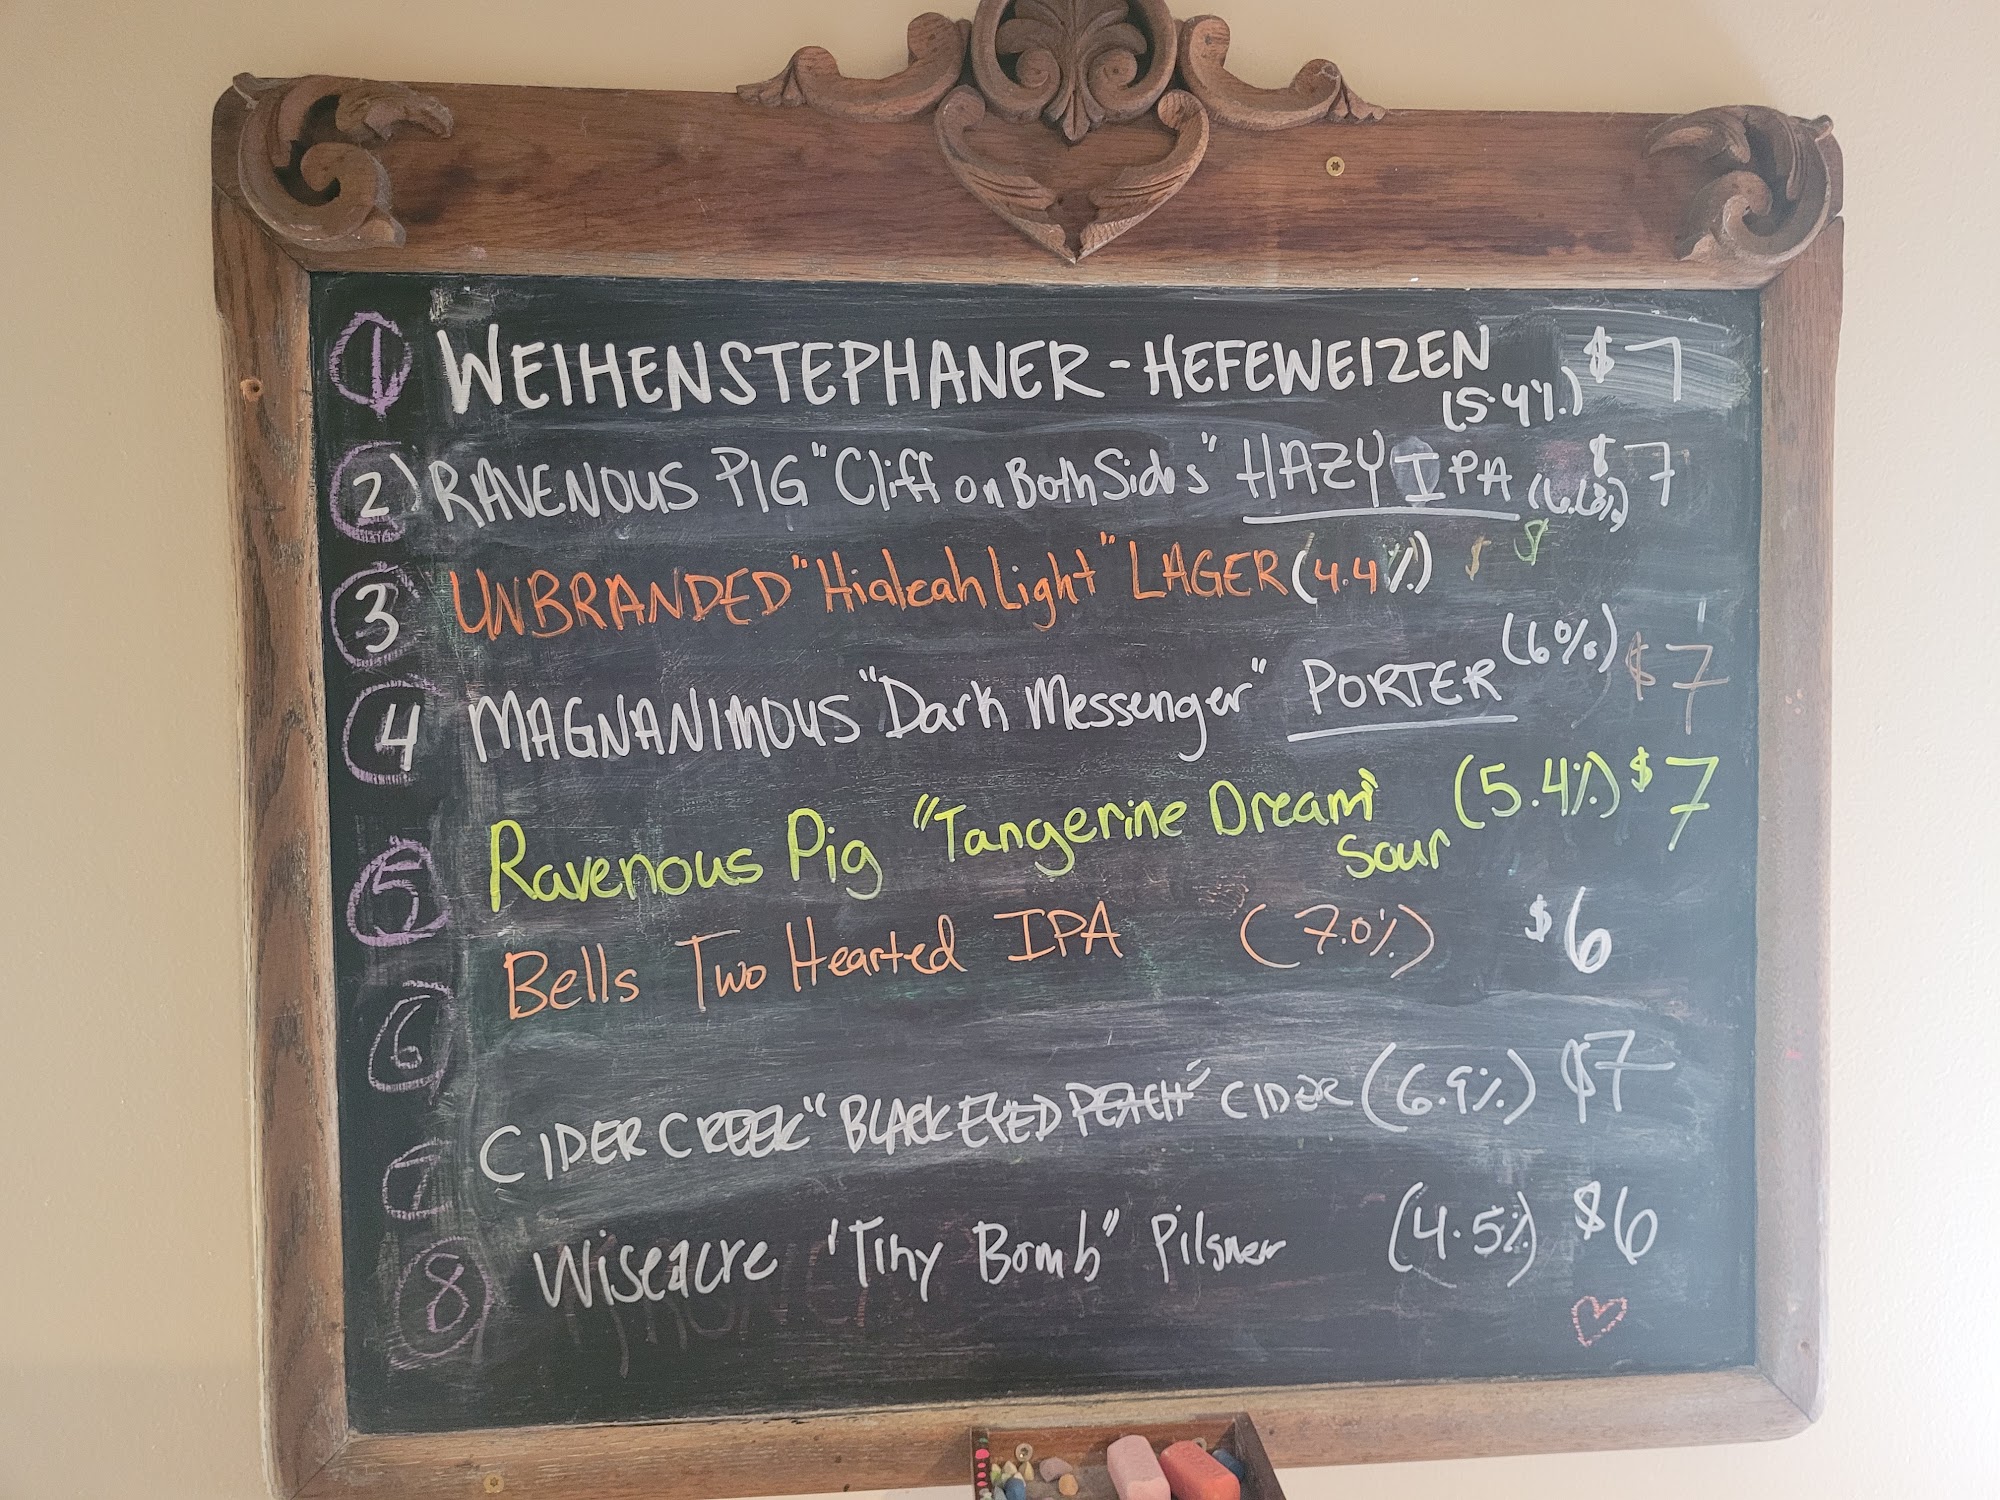 1 WEIHENSTEPHANER - HEFEWEIZEN $7
(5.4%)
2) RAVENOUS PIG "Cliff on Both Sides" HAZY IPA $7
3 UNBRANDED "Hialeah Light" LAGER (4.4%) $ $
4 MAGNANIMOUS "Dark Messenger" PORTER (6%) $7
5 Ravenous Pig "Tangerine Dream" (5.4%) $7
Sour
6 Bells Two Hearted IPA (7.0%) $6
7 CIDER CREEK "BLACK EYED PEACH" CIDER (6.9%) $7
8 Wiseacre "Tiny Bomb" Pilsner (4.5%) $6